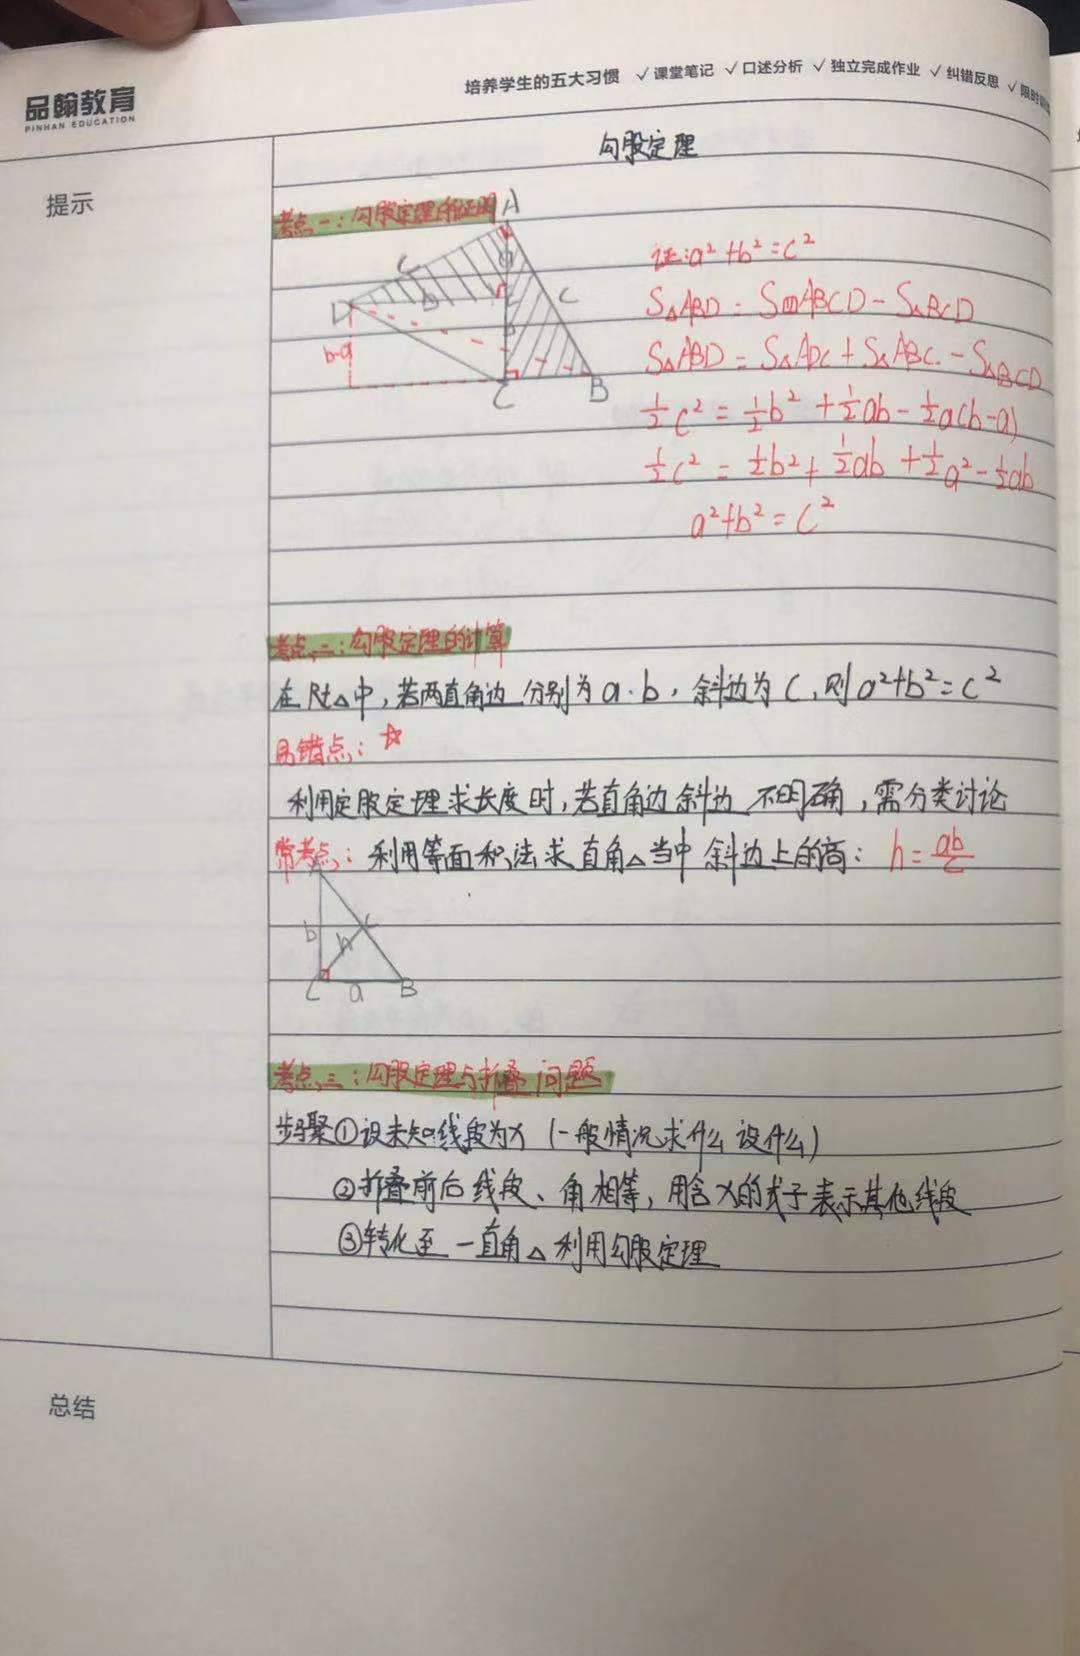 品翰教育
PINHAN EDUCATION
培养学生的五大习惯 ✓课堂笔记 ✓口述分析 ✓独立完成作业 ✓纠错反思 ✓限时
勾股定理
提示
考点一:勾股定理的证明
A
C
a
D
b
C
b-a
C
B
证:a²+b²=c²
S△ABD=S四ABCD-S△BCD
S△ABD=S△ADC+S△ABC-S△BCD
½c²=½b²+½ab-½a(b-a)
½c²=½b²+½ab+½a²-½ab
a²+b²=c²
考点二:勾股定理的计算
在Rt△中,若两直角边分别为a.b,斜边为c,则a²+b²=c²
易错点:☆
利用定股定理求长度时,若直角边斜边不明确,需分类讨论
常考点:利用等面积法求直角△当中斜边上的高:h=ab/c
A
b
h
c
C
a
B
考点三:勾股定理与折叠问题
步骤①设未知线段为x(一般情况求什么设什么)
②折叠前后线段、角相等,用含x的式子表示其他线段
③转化至一直角△利用勾股定理
总结